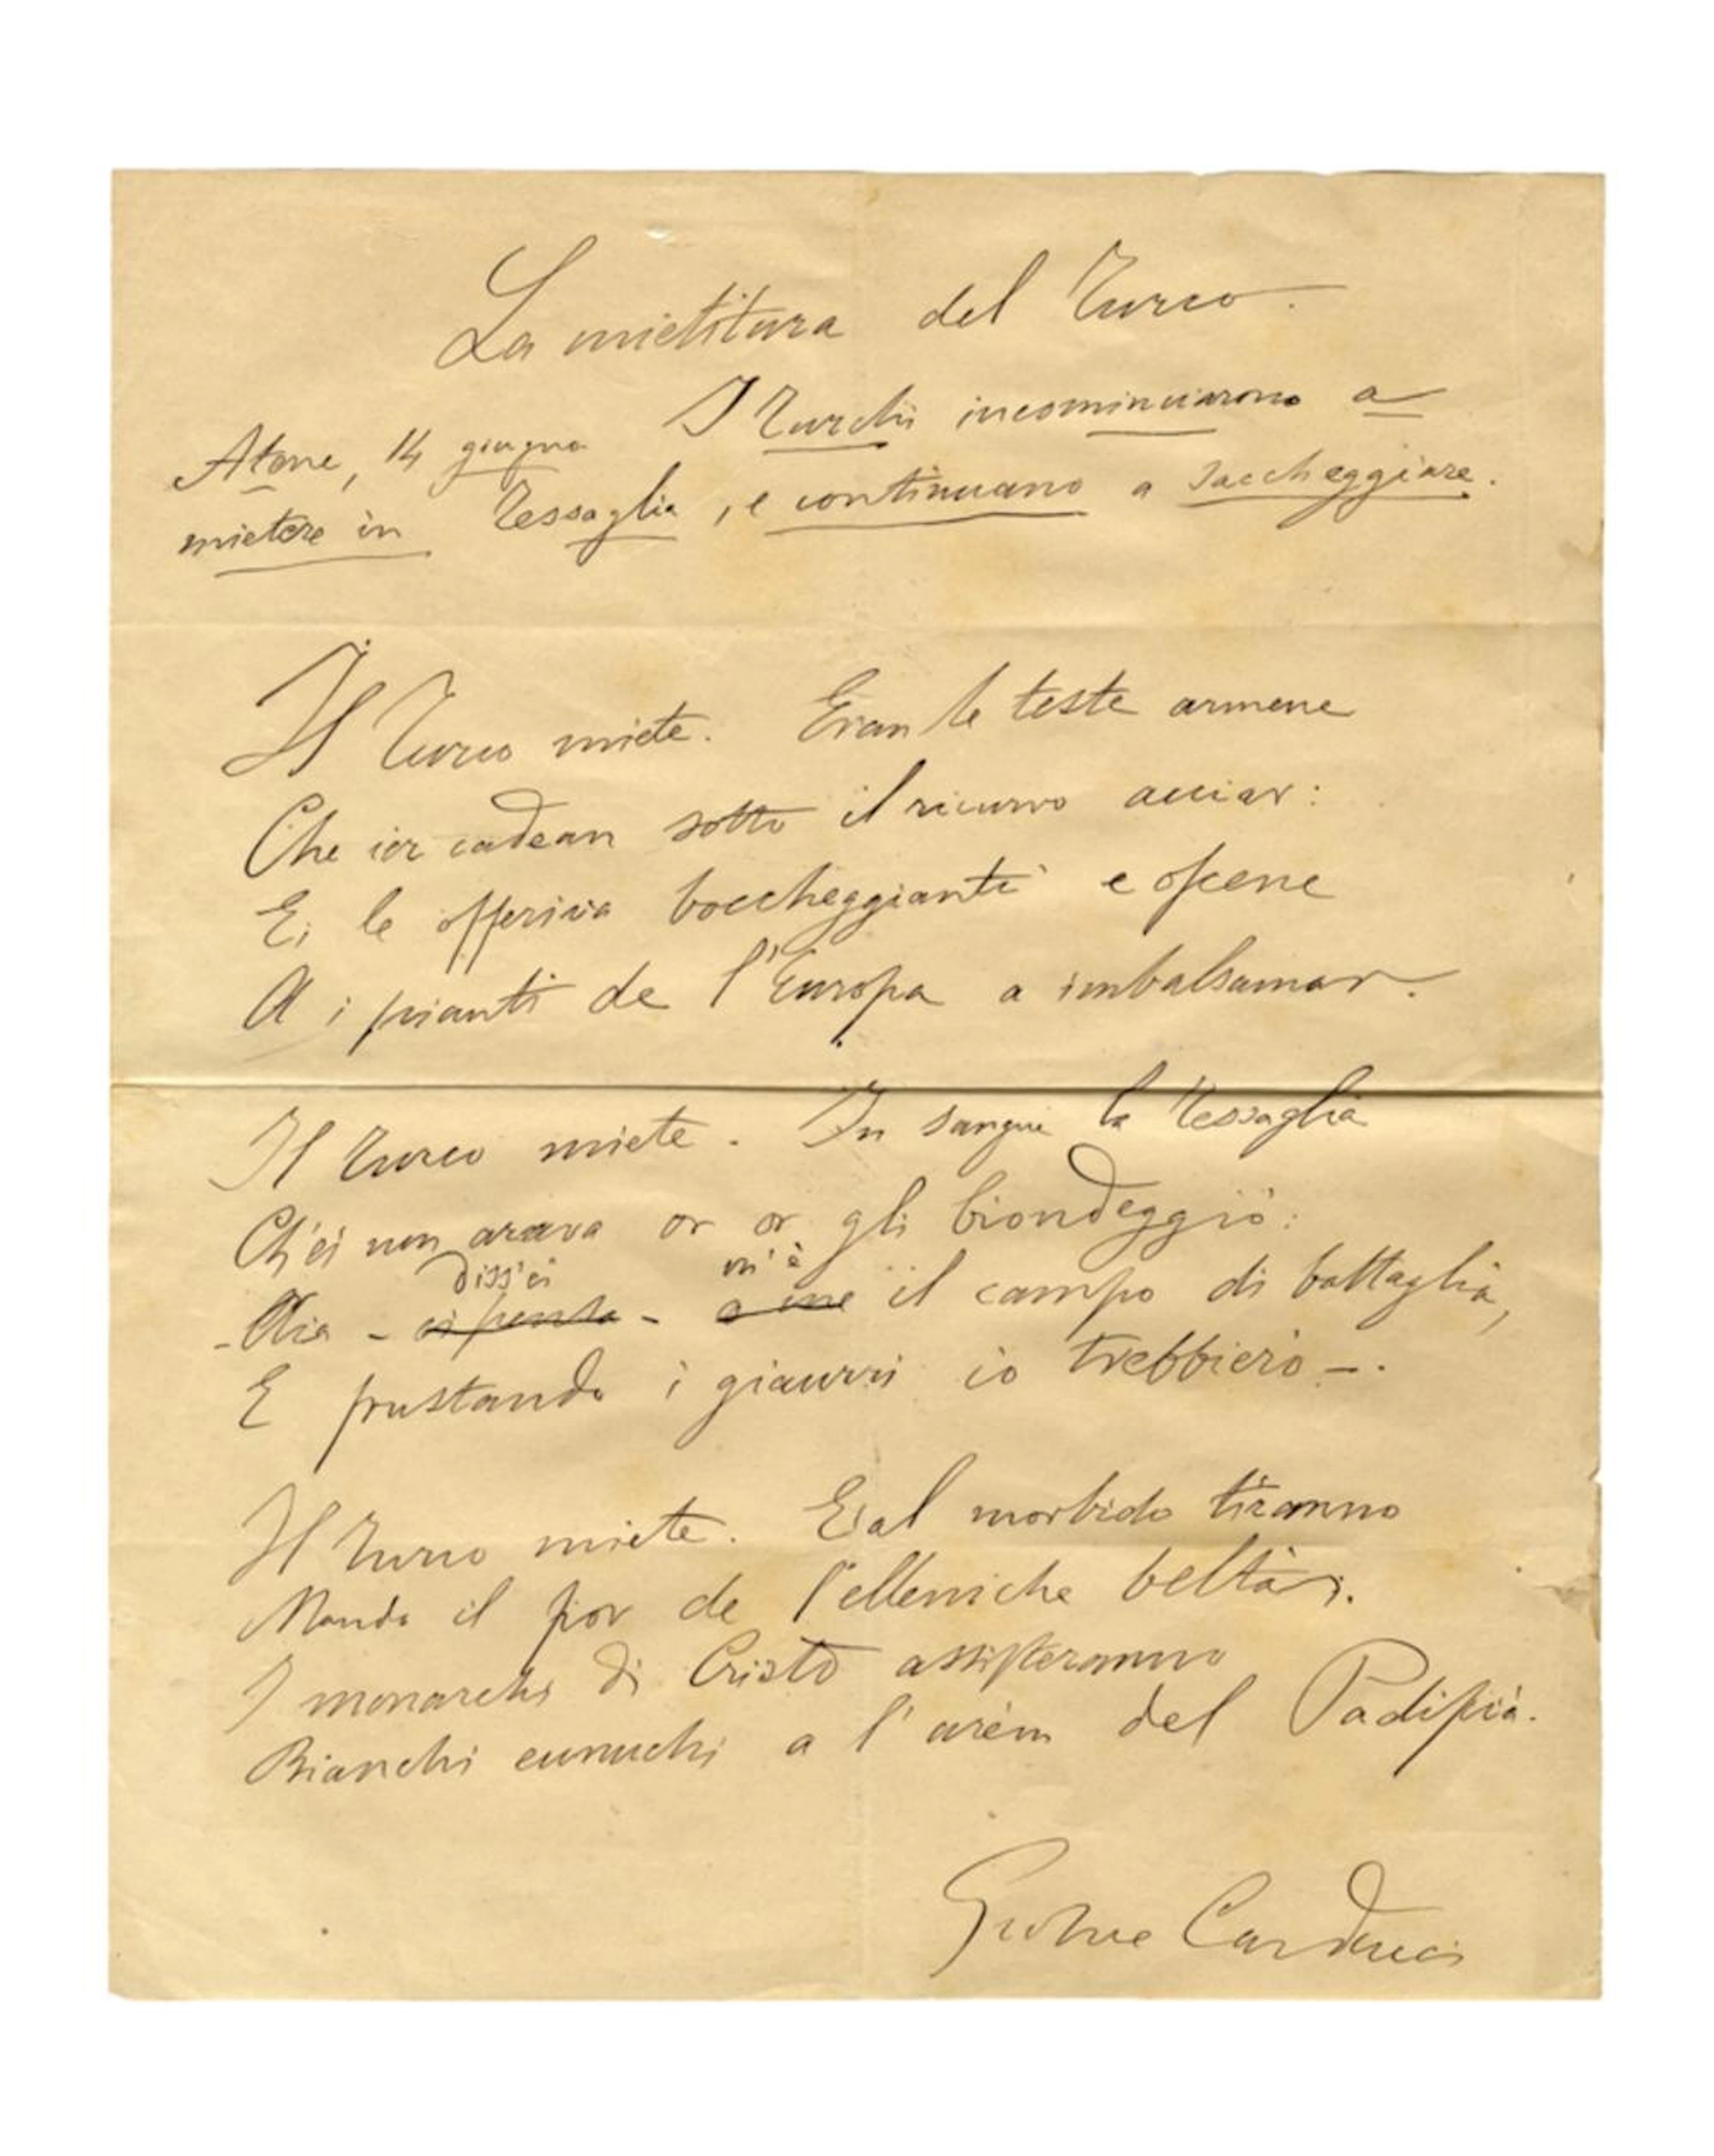 La mietitura del Turco.
Atene, 14 giugno I Turchi incominciarono a
mietere in Tessaglia, e continuano a saccheggiare.
Il Turco miete. Eran le teste armene
Che ier cadean sotto il ricurvo acciar:
Ei le offeriva boccheggianti e oscene
A i pianti de l'Europa a imbalsamar.
Il Turco miete. In sangue la Tessaglia
Ch'ei non arava or or gli biondeggiò:
diss'ei m'è
- Aia - ei pensa - a me il campo di battaglia,
E frustando i giaurri io trebbierò -.
Il Turco miete. E al morbido tiranno
Manda il fior de l'elleniche beltà.
I monarchi di Cristo assisteranno
Bianchi eunuchi a l'arèm del Padiscià.
Giosue Carducci